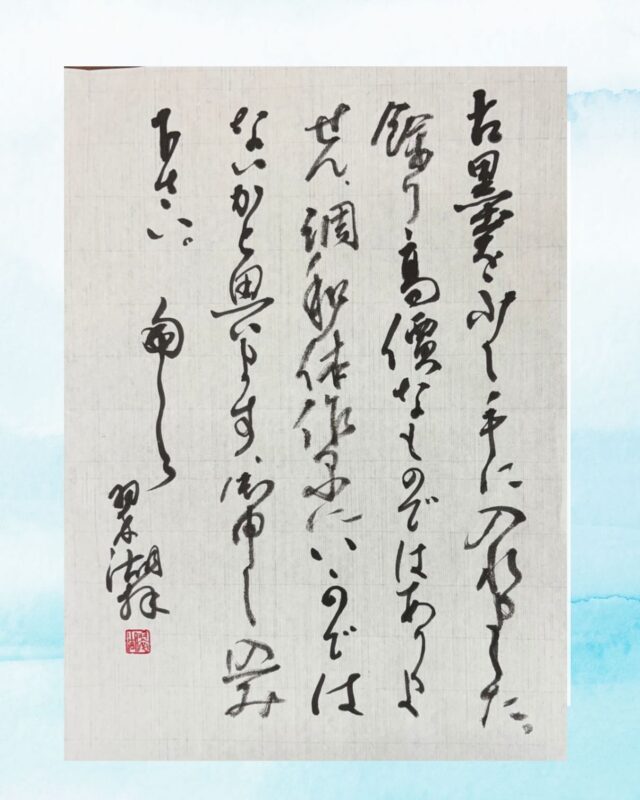 古墨を少し手に入れました。
餘り高價なものではありま
せん、調和体作品にいいのでは
ないかと思います、御申し込み
下さい。
翠湖拝